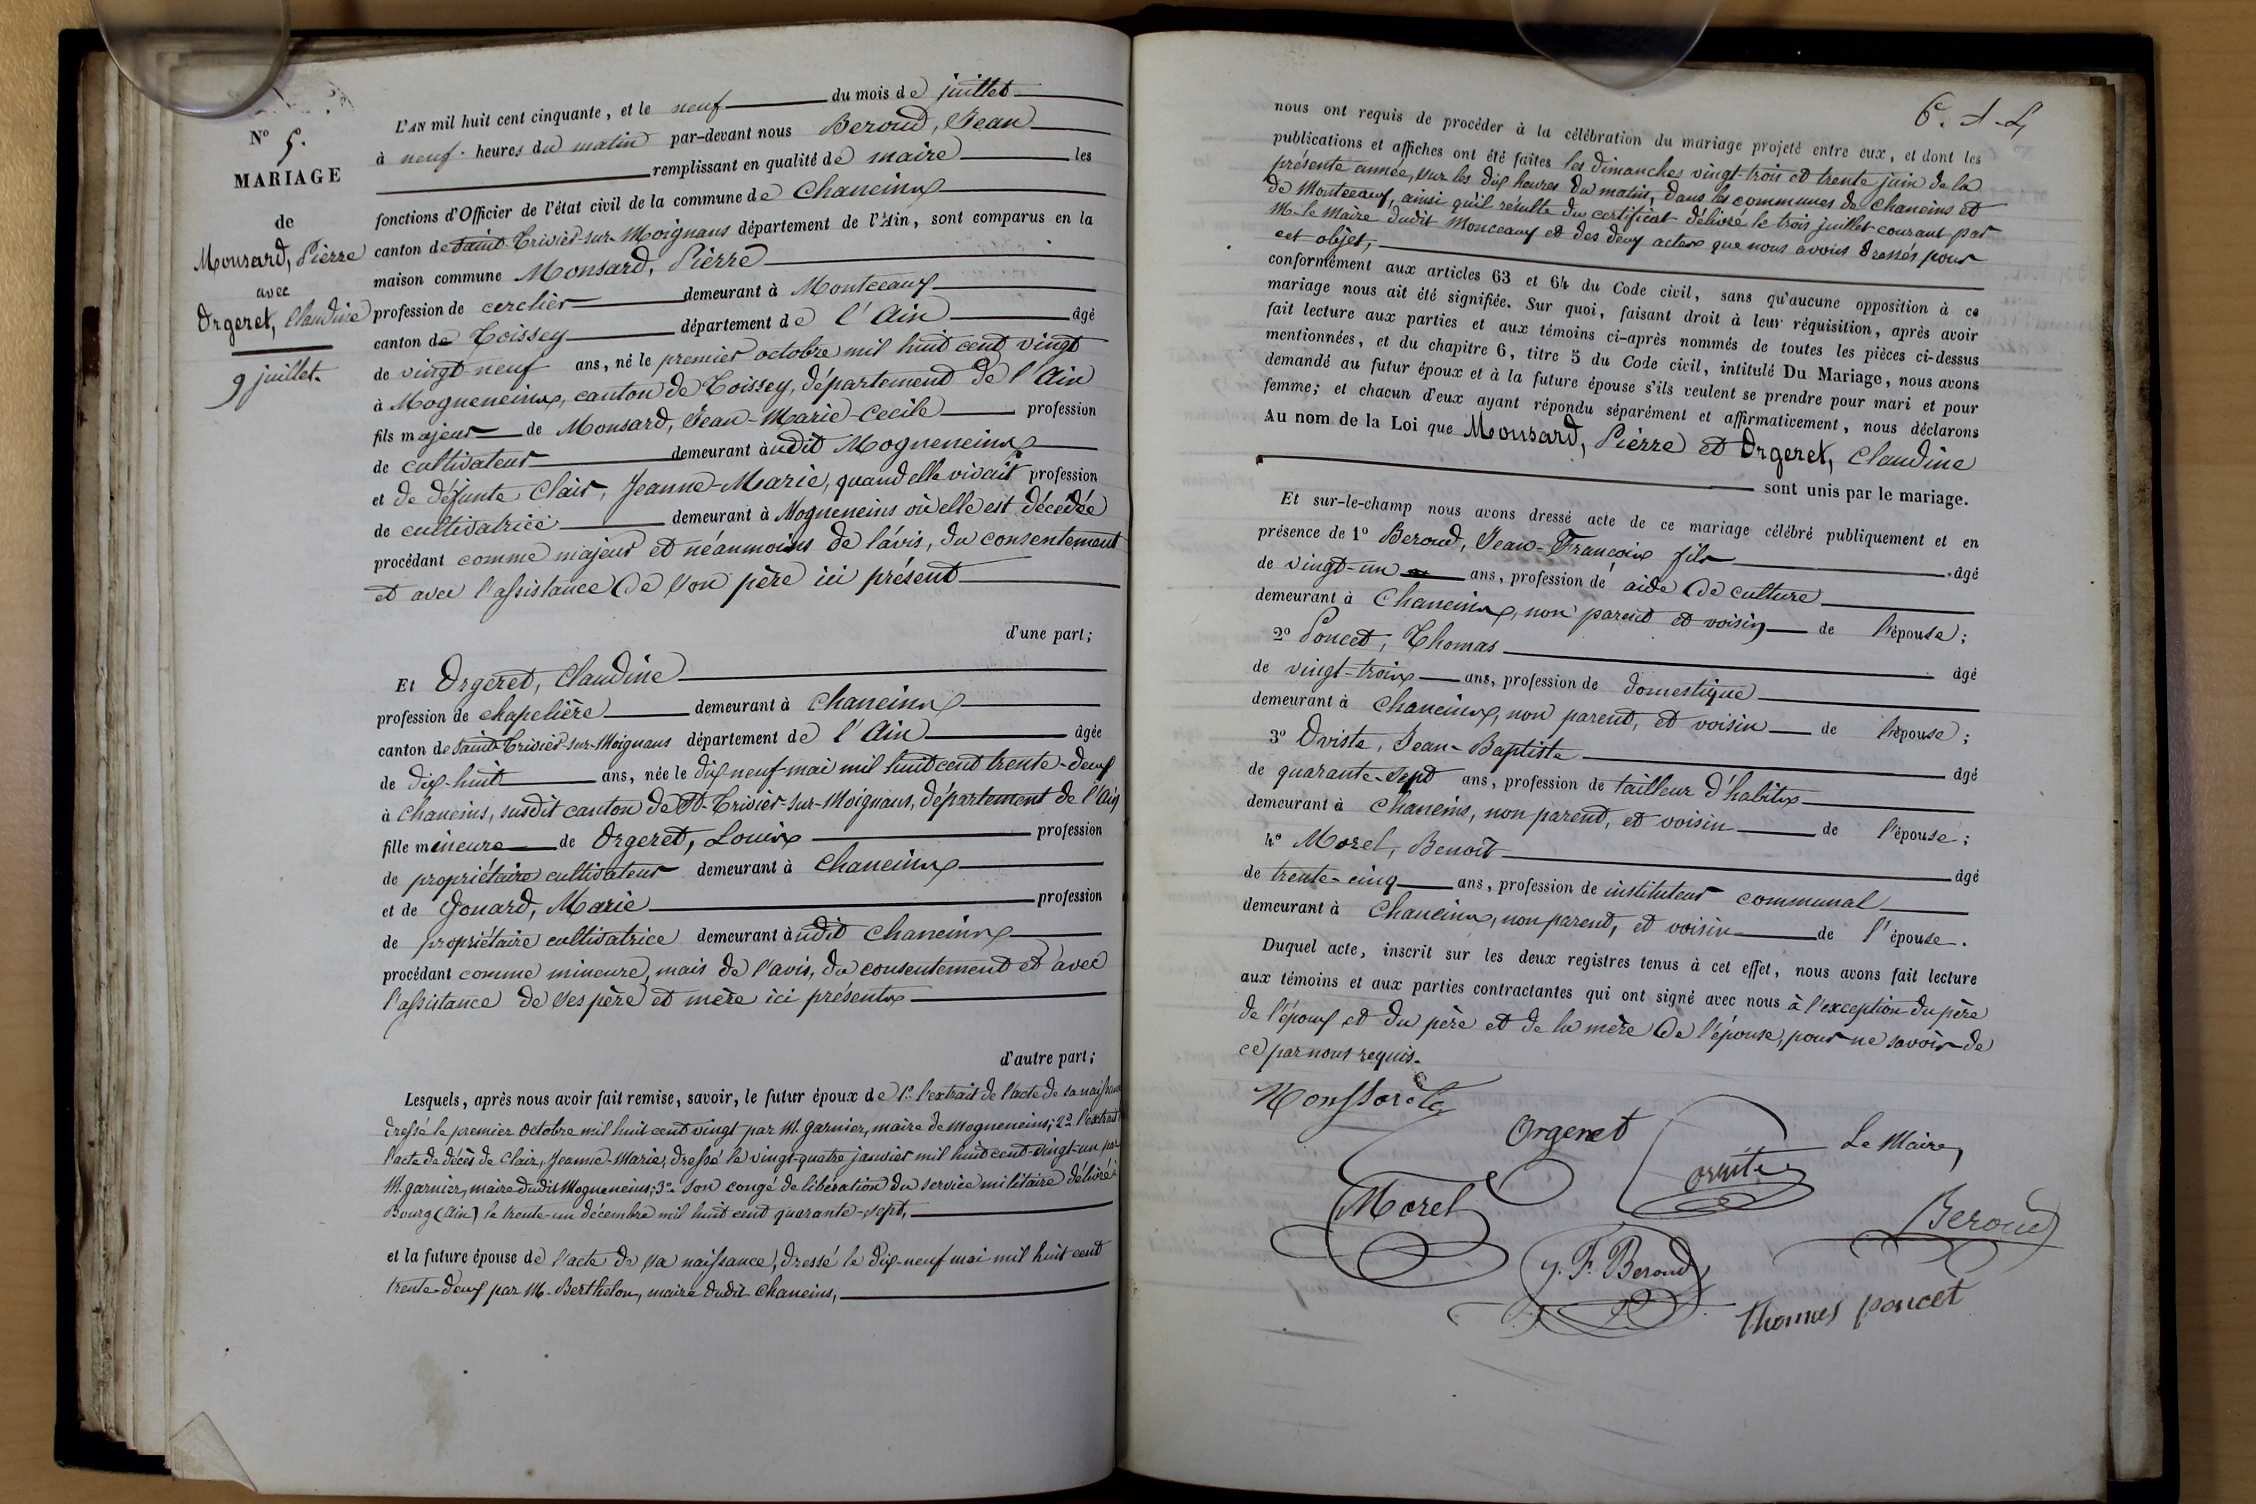 N° 5.
MARIAGE
de
Monsard, Pierre
avec
Orgeret, Claudine
9 juillet.
L'AN mil huit cent cinquante, et le neuf du mois de juillet
à neuf heures du matin par-devant nous Beroud, Jean
remplissant en qualité de maire les
fonctions d'Officier de l'état civil de la commune de Chaneins
canton de Saint-Trivier-sur-Moignans département de l'Ain, sont comparus en la
maison commune Monsard, Pierre
profession de cerclier demeurant à Montceaux
canton de Toissey département de l'Ain âgé
de vingt-neuf ans, né le premier octobre mil huit cent vingt
à Mogneneins, canton de Toissey, département de l'Ain
fils majeur de Monsard, Jean-Marie-Cecile profession
de cultivateur demeurant àudit Mogneneins
et de défunte Clair, Jeanne-Marie, quand elle vivait profession
de cultivatrice demeurant à Mogneneins où elle est décédée
procédant comme majeur et néanmoins de l'avis, du consentement
et avec l'assistance de son père ici présent
d'une part;
Et Orgeret, Claudine
profession de chapelière demeurant à Chaneins
canton de Saint-Trivier-sur-Moignans département de l'Ain âgée
de dix-huit ans, née le dix-neuf mai mil huit cent trente-deux
à Chaneins, susdit canton de St-Trivier-sur-Moignans, département de l'Ain
fille mineure de Orgeret, Louis profession
de propriétaire cultivateur demeurant à Chaneins
et de Gonard, Marie profession
de propriétaire cultivatrice demeurant àudit Chaneins
procédant comme mineure, mais de l'avis, du consentement et avec
l'assistance de ses père et mère ici présents
d'autre part;
Lesquels, après nous avoir fait remise, savoir, le futur époux de 1° l'extrait de l'acte de sa naissance
dressé le premier octobre mil huit cent vingt par M. Garnier, maire de Mogneneins; 2° l'extrait
l'acte de décès de Clair, Jeanne-Marie, dressé le vingt-quatre janvier mil huit cent-vingt-un par
M. Garnier, maire dudit Mogneneins; 3° son congé de libération du service militaire délivré à
Bourg (Ain) le trente-un décembre mil huit cent quarante-sept,
et la future épouse de l'acte de sa naissance, dressé le dix-neuf mai mil huit cent
trente-deux par M. Berthelon, maire dudit Chaneins,
nous ont requis de procéder à la célébration du mariage projeté entre eux, et dont les
publications et affiches ont été faites les dimanches vingt-trois et trente juin de la
présente année, sur les dix heures du matin, dans les communes de Chaneins et
de Montceaux, ainsi qu'il résulte du certificat délivré le trois juillet courant par
M. le Maire dudit Monceaux et des deux actes que nous avons dressés pour
cet objet,
conformément aux articles 63 et 64 du Code civil, sans qu'aucune opposition à ce
mariage nous ait été signifiée. Sur quoi, faisant droit à leur réquisition, après avoir
fait lecture aux parties et aux témoins ci-après nommés de toutes les pièces ci-dessus
mentionnées, et du chapitre 6, titre 5 du Code civil, intitulé Du Mariage, nous avons
demandé au futur époux et à la future épouse s'ils veulent se prendre pour mari et pour
femme; et chacun d'eux ayant répondu séparément et affirmativement, nous déclarons
Au nom de la Loi que Monsard, Pierre et Orgeret, Claudine
sont unis par le mariage.
Et sur-le-champ nous avons dressé acte de ce mariage célébré publiquement et en
présence de 1° Beroud, Jean-François fils âgé
de vingt-un ans, profession de aide de culture
demeurant à Chaneins, non parent et voisin de l'épouse;
2° Poncet, Thomas âgé
de vingt-trois ans, profession de domestique
demeurant à Chaneins, non parent, et voisin de l'épouse;
3° Oviste, Jean-Baptiste âgé
de quarante-sept ans, profession de tailleur d'habits
demeurant à Chaneins, non parent, et voisin de l'épouse;
4° Morel, Benoît âgé
de trente-cinq ans, profession de instituteur communal
demeurant à Chaneins, non parent, et voisin de l'épouse.
Duquel acte, inscrit sur les deux registres tenus à cet effet, nous avons fait lecture
aux témoins et aux parties contractantes qui ont signé avec nous à l'exception du père
de l'époux et du père et de la mère de l'épouse, pour ne savoir de
ce par nous requis.
Orgeret
Le Maire,
Morel
Beroud
J. F. Beroud
Thomas poncet